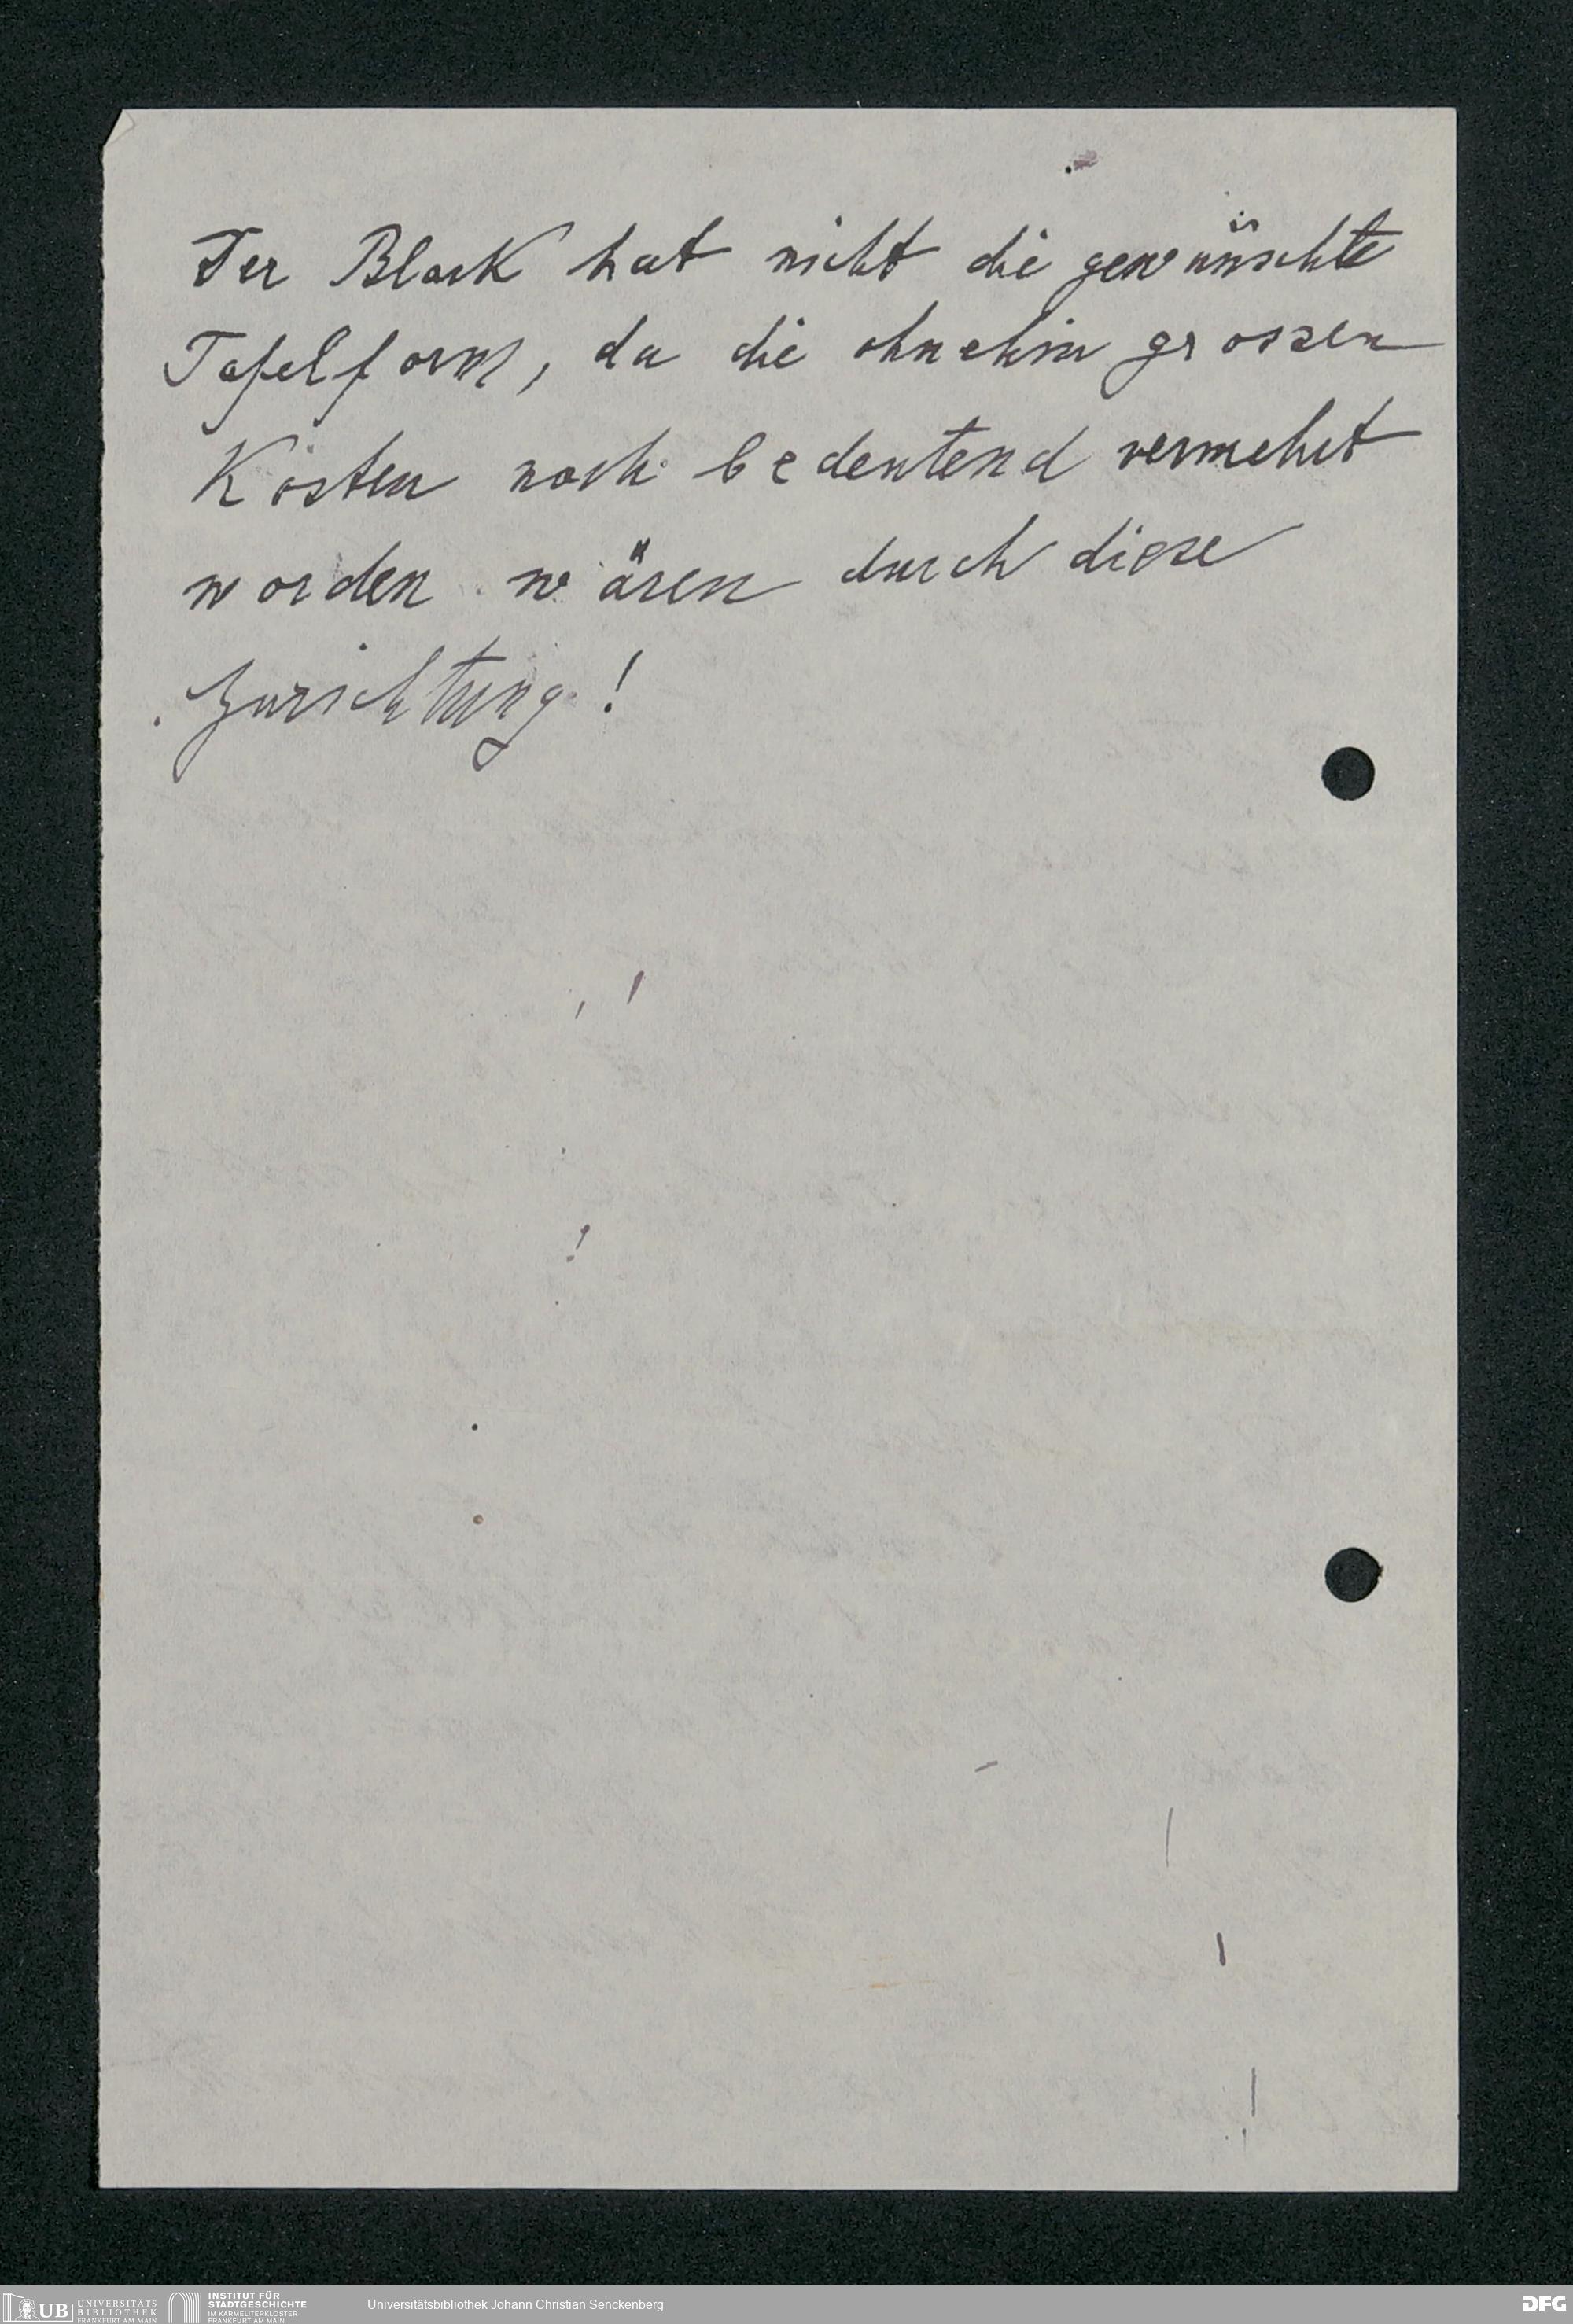 Der Block hat nicht die gewünschte
Tafelform, da die ohnehin grossen
Kosten noch bedeutend vermehrt
worden wären durch diese
Zurichtung!
UB UNIVERSITÄTS
BIBLIOTHEK
FRANKFURT AM MAIN
INSTITUT FÜR
STADTGESCHICHTE
IM KARMELITERKLOSTER
FRANKFURT AM MAIN
Universitätsbibliothek Johann Christian Senckenberg
DFG